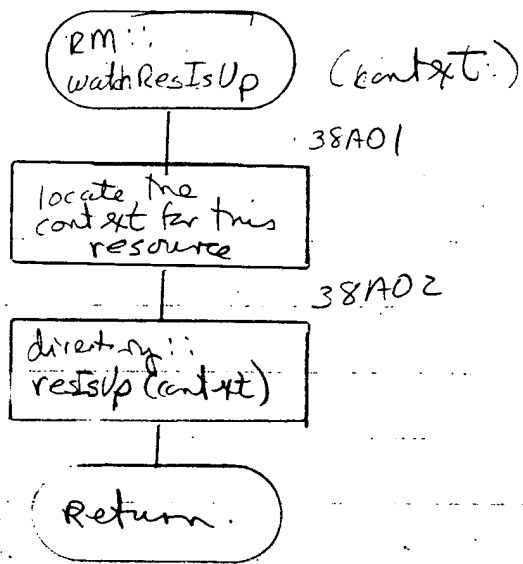 RM::
watchResIsUp
(context:)
38A01
locate the
context for this
resource
38A02
directory::
resIsUp(context)
Return.